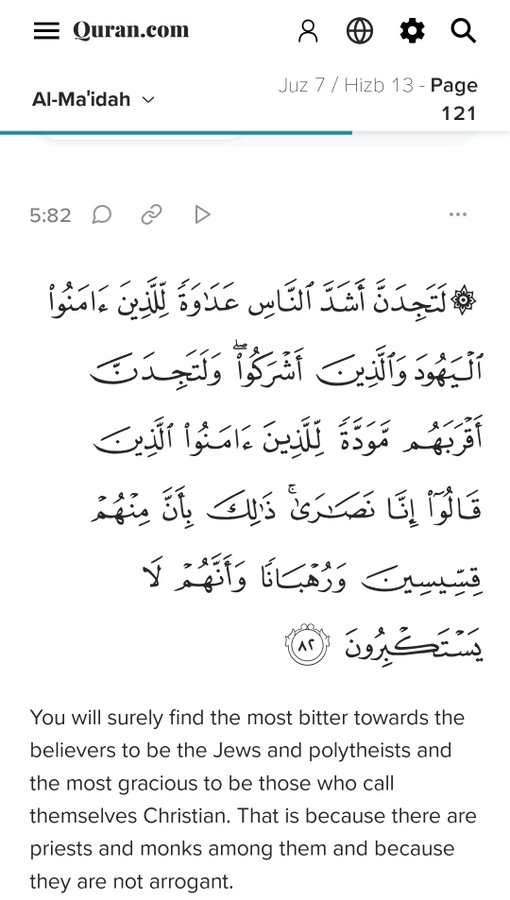 Quran.com
Al-Ma'idah
Juz 7 / Hizb 13 - Page
121
5:82
۞ لَتَجِدَنَّ أَشَدَّ ٱلنَّاسِ عَدَٰوَةً لِّلَّذِينَ ءَامَنُوا۟
ٱلْيَهُودَ وَٱلَّذِينَ أَشْرَكُوا۟ ۖ وَلَتَجِدَنَّ
أَقْرَبَهُم مَّوَدَّةً لِّلَّذِينَ ءَامَنُوا۟ ٱلَّذِينَ
قَالُوٓا۟ إِنَّا نَصَـٰرَىٰ ۚ ذَٰلِكَ بِأَنَّ مِنْهُمْ
قِسِّيسِينَ وَرُهْبَانًا وَأَنَّهُمْ لَا
يَسْتَكْبِرُونَ ٨٢
You will surely find the most bitter towards the
believers to be the Jews and polytheists and
the most gracious to be those who call
themselves Christian. That is because there are
priests and monks among them and because
they are not arrogant.